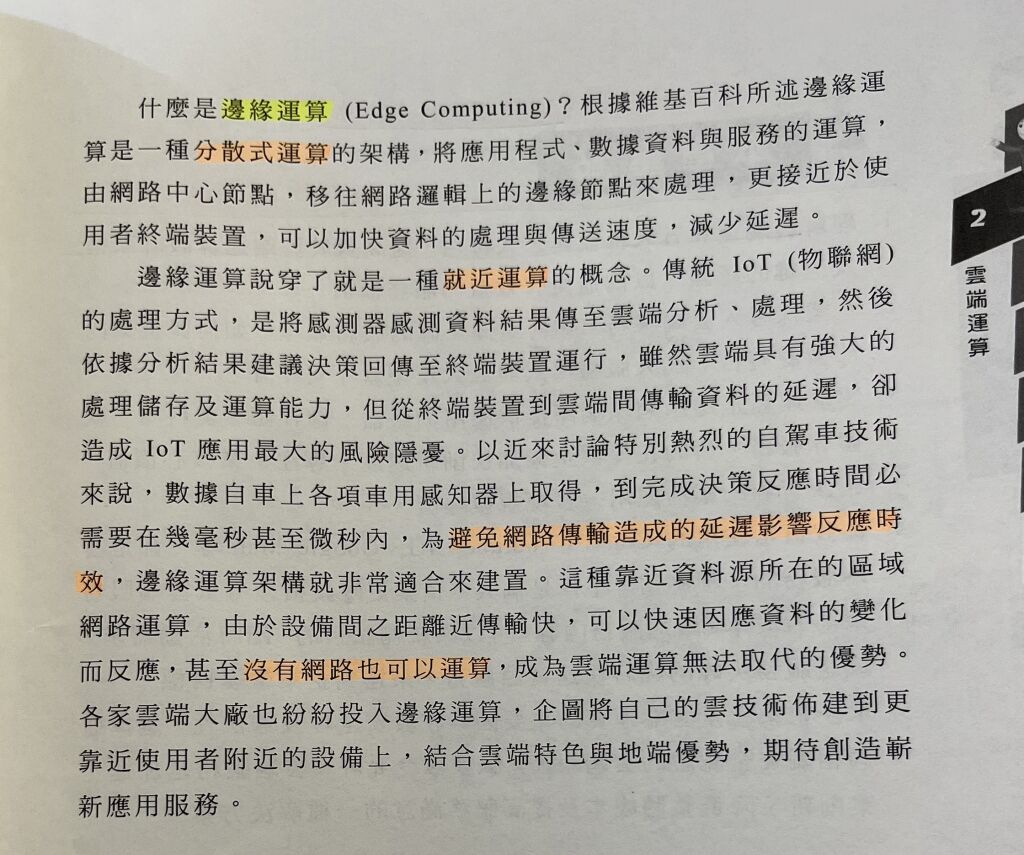 什麼是邊緣運算 (Edge Computing)？根據維基百科所述邊緣運
算是一種分散式運算的架構，將應用程式、數據資料與服務的運算，
由網路中心節點，移往網路邏輯上的邊緣節點來處理，更接近於使
用者終端裝置，可以加快資料的處理與傳送速度，減少延遲。
邊緣運算說穿了就是一種就近運算的概念。傳統 IoT (物聯網)
的處理方式，是將感測器感測資料結果傳至雲端分析、處理，然後
依據分析結果建議決策回傳至終端裝置運行，雖然雲端具有強大的
處理儲存及運算能力，但從終端裝置到雲端間傳輸資料的延遲，卻
造成 IoT 應用最大的風險隱憂。以近來討論特別熱烈的自駕車技術
來說，數據自車上各項車用感知器上取得，到完成決策反應時間必
需要在幾毫秒甚至微秒內，為避免網路傳輸造成的延遲影響反應時
效，邊緣運算架構就非常適合來建置。這種靠近資料源所在的區域
網路運算，由於設備間之距離近傳輸快，可以快速因應資料的變化
而反應，甚至沒有網路也可以運算，成為雲端運算無法取代的優勢。
各家雲端大廠也紛紛投入邊緣運算，企圖將自己的雲技術佈建到更
靠近使用者附近的設備上，結合雲端特色與地端優勢，期待創造嶄
新應用服務。
2
雲端運算